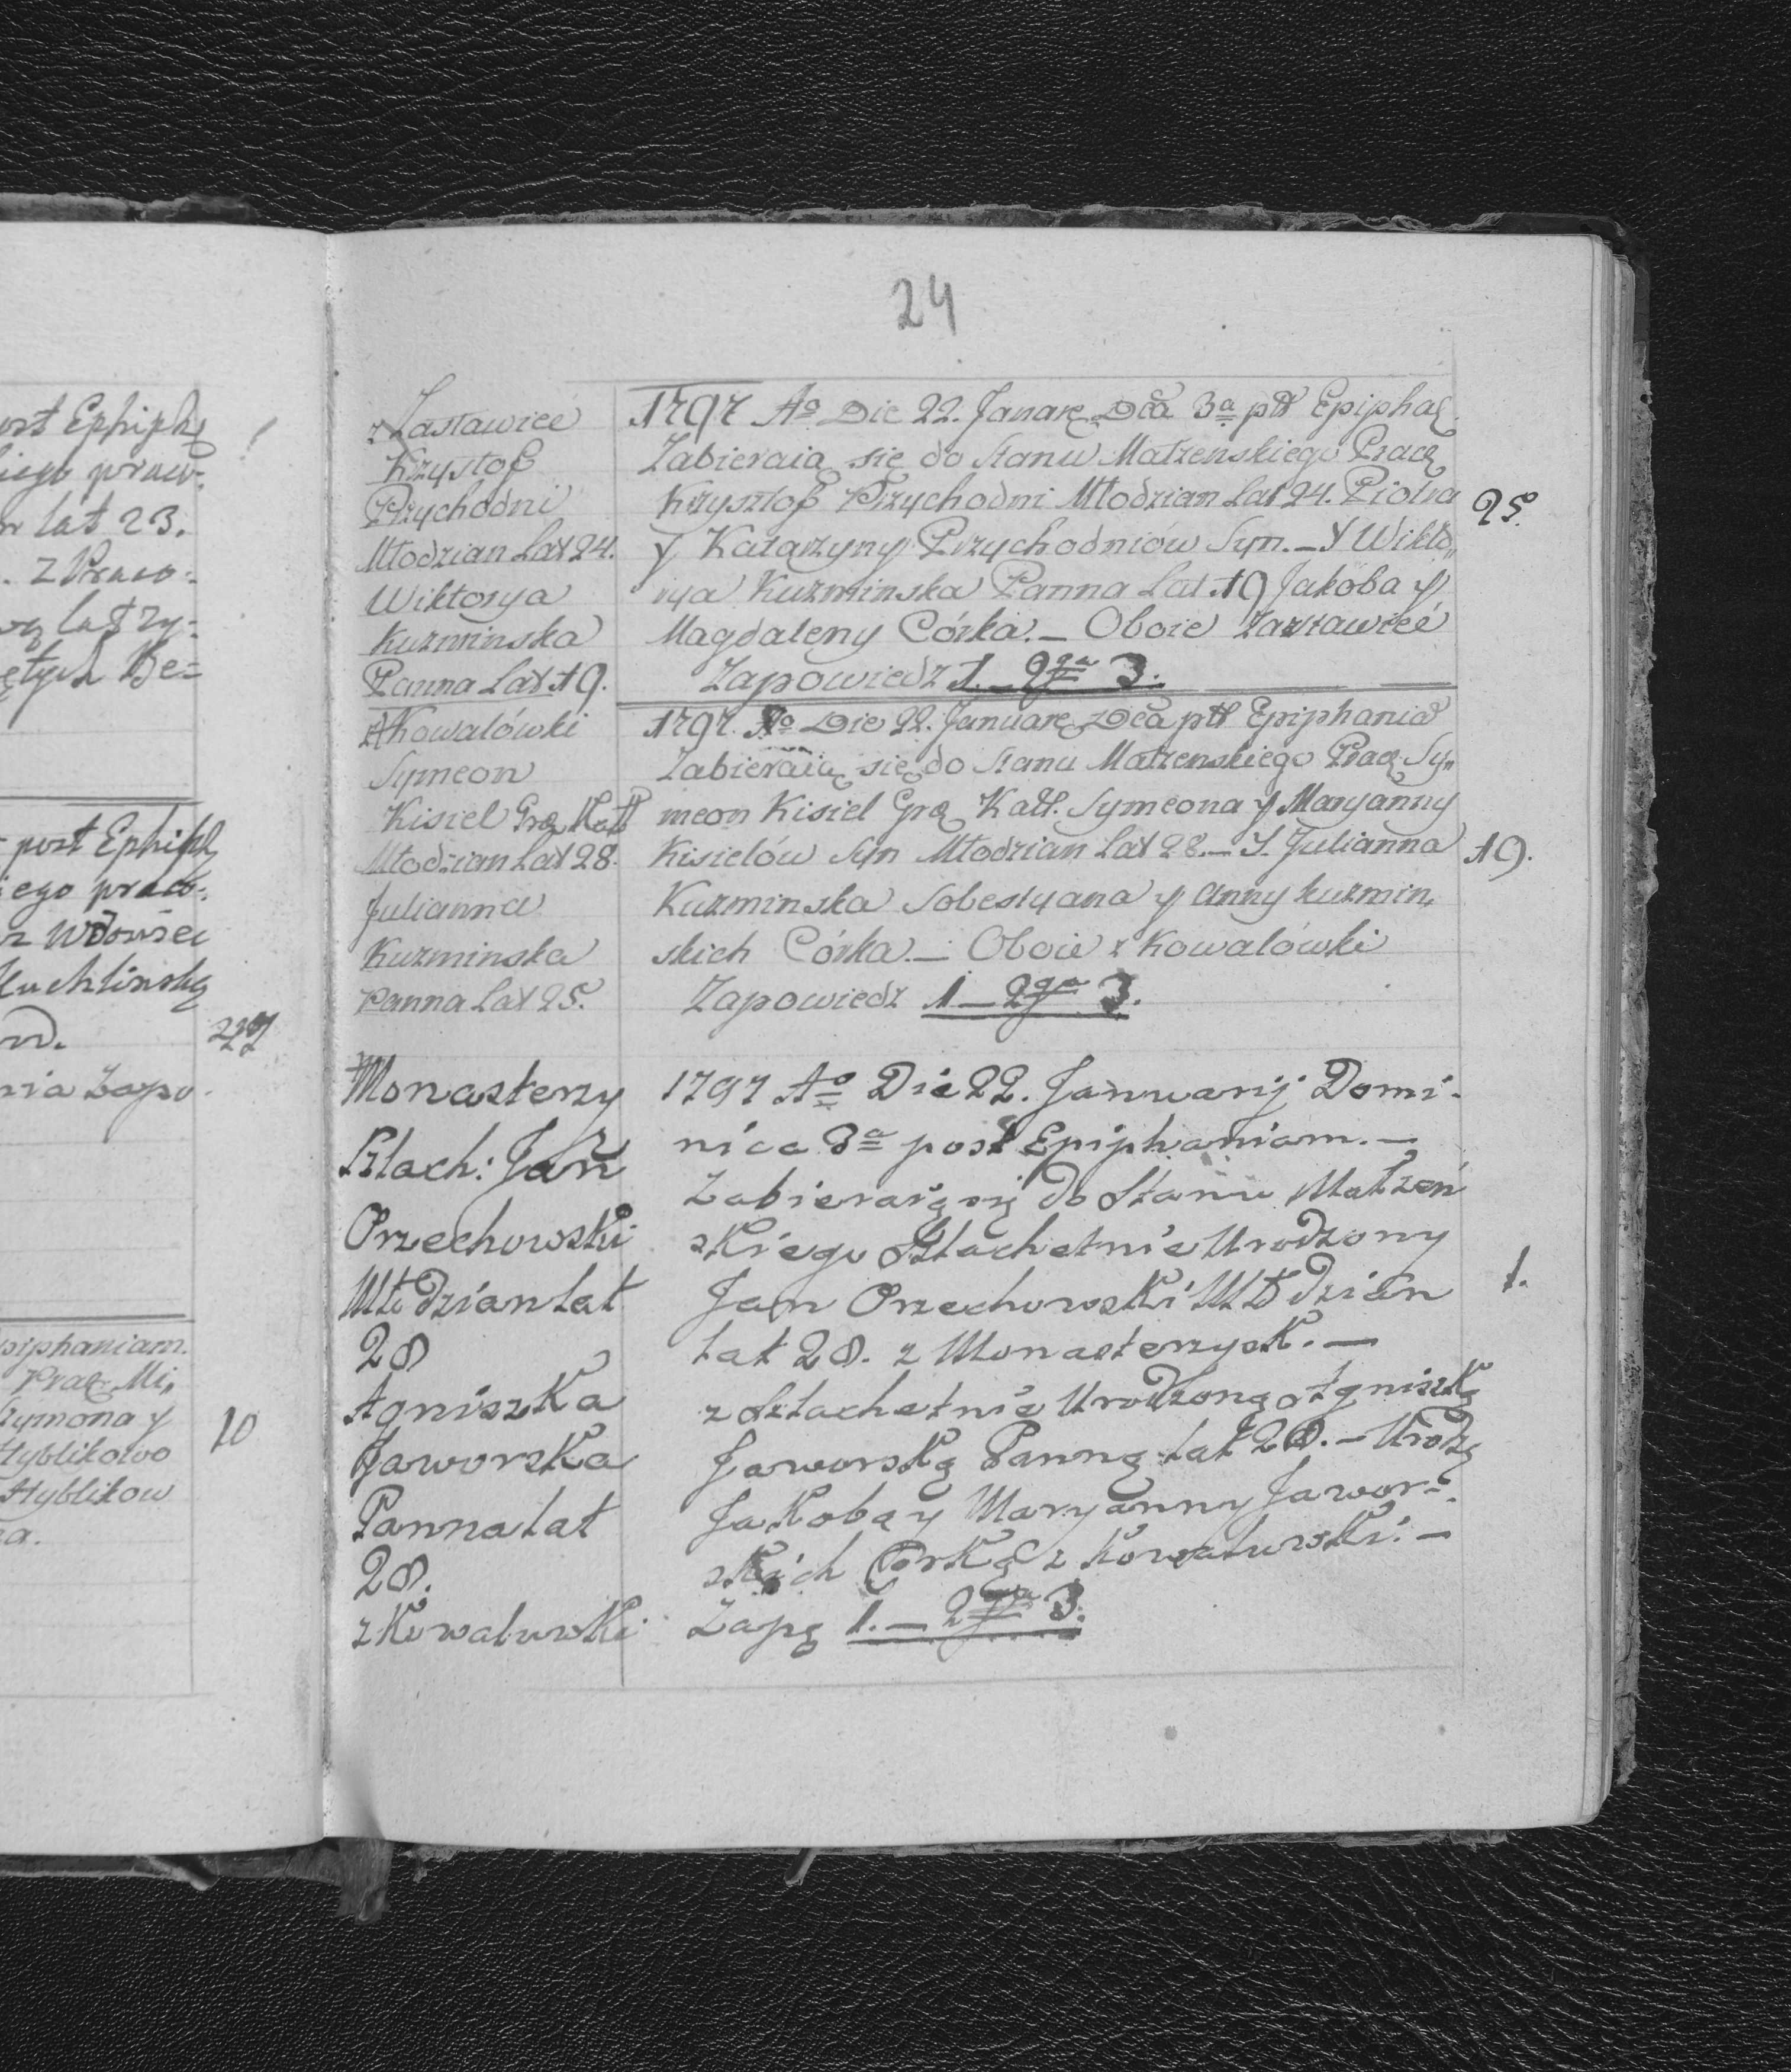 ost Ephiph
iego praw-
n lat 23.
. z Praw-
lat 25-
ętych Ke=
post Ephiph
iego praw-
z Wdowiec
Kuchlinską
nia Zapo
229
piphaniam.
Prac. Mi„
Szymona y
Hyblikowo
Hyblikow
a.
10
24
z Zastawiec
Krzystof
Przychodni
Młodzian Lat 24.
Wiktorya
Kuzminska
Panna Lat 19.
1797 Ao Die 22. Januarę Dca 3a ptt Epipha
Zabieraią się do Stanu Małzenskiego Prace
Krzysztof Przychodni Młodzian Lat 24. Piotra
Y Katarzyny Przychodniów Syn. – Y Wikto„
rya Kuzminska Panna Lat 19 Jakoba y
Magdaleny Córka. – Oboie z Zastawieć
Zapowiedz 1. – 2ga 3.
25.
z Kowalówki
Symeon
Kisiel Grę Katt
Młodzian Lat 28.
Julianna
Kuzminska
Panna Lat 25.
1797. Ao Die 22. Januarę Dca ptt Epiphania
Zabieraią się do Stanu Małzenskiego Prac. Sy„
meon Kisiel Grę Katt. Symeona y Maryanny
Kisielów Syn Młodzian Lat 28. – Y. Julianna
Kuzminska Sobestyana y Anny Kuzmin„
skich Córka. – Oboie z Kowalówki
Zapowiedz 1 – 2ga 3.
19.
Monasterzy
Szlach: Jan
Orzechowski
Młodzian lat
28
Agniszka
Jaworska
Panna lat
28.
z Kowaluwki
1797 Ao Die 22. Januarij Domi-
nica 3a post Epiphaniam. –
Zabieraią się do Stanu Małzeń
skiego Szlachetnie Urodzony
Jan Orzechowski Młodzian
lat 28. z Monasterzysk. –
z Szlachetnie Urodzoną Agniszką
Jaworską Panną lat 28. – Urodz
Jakoba y Maryanny Jawor-
skich Corką z Kowaluwki. –
Zapę 1. – 2ga 3.
1.